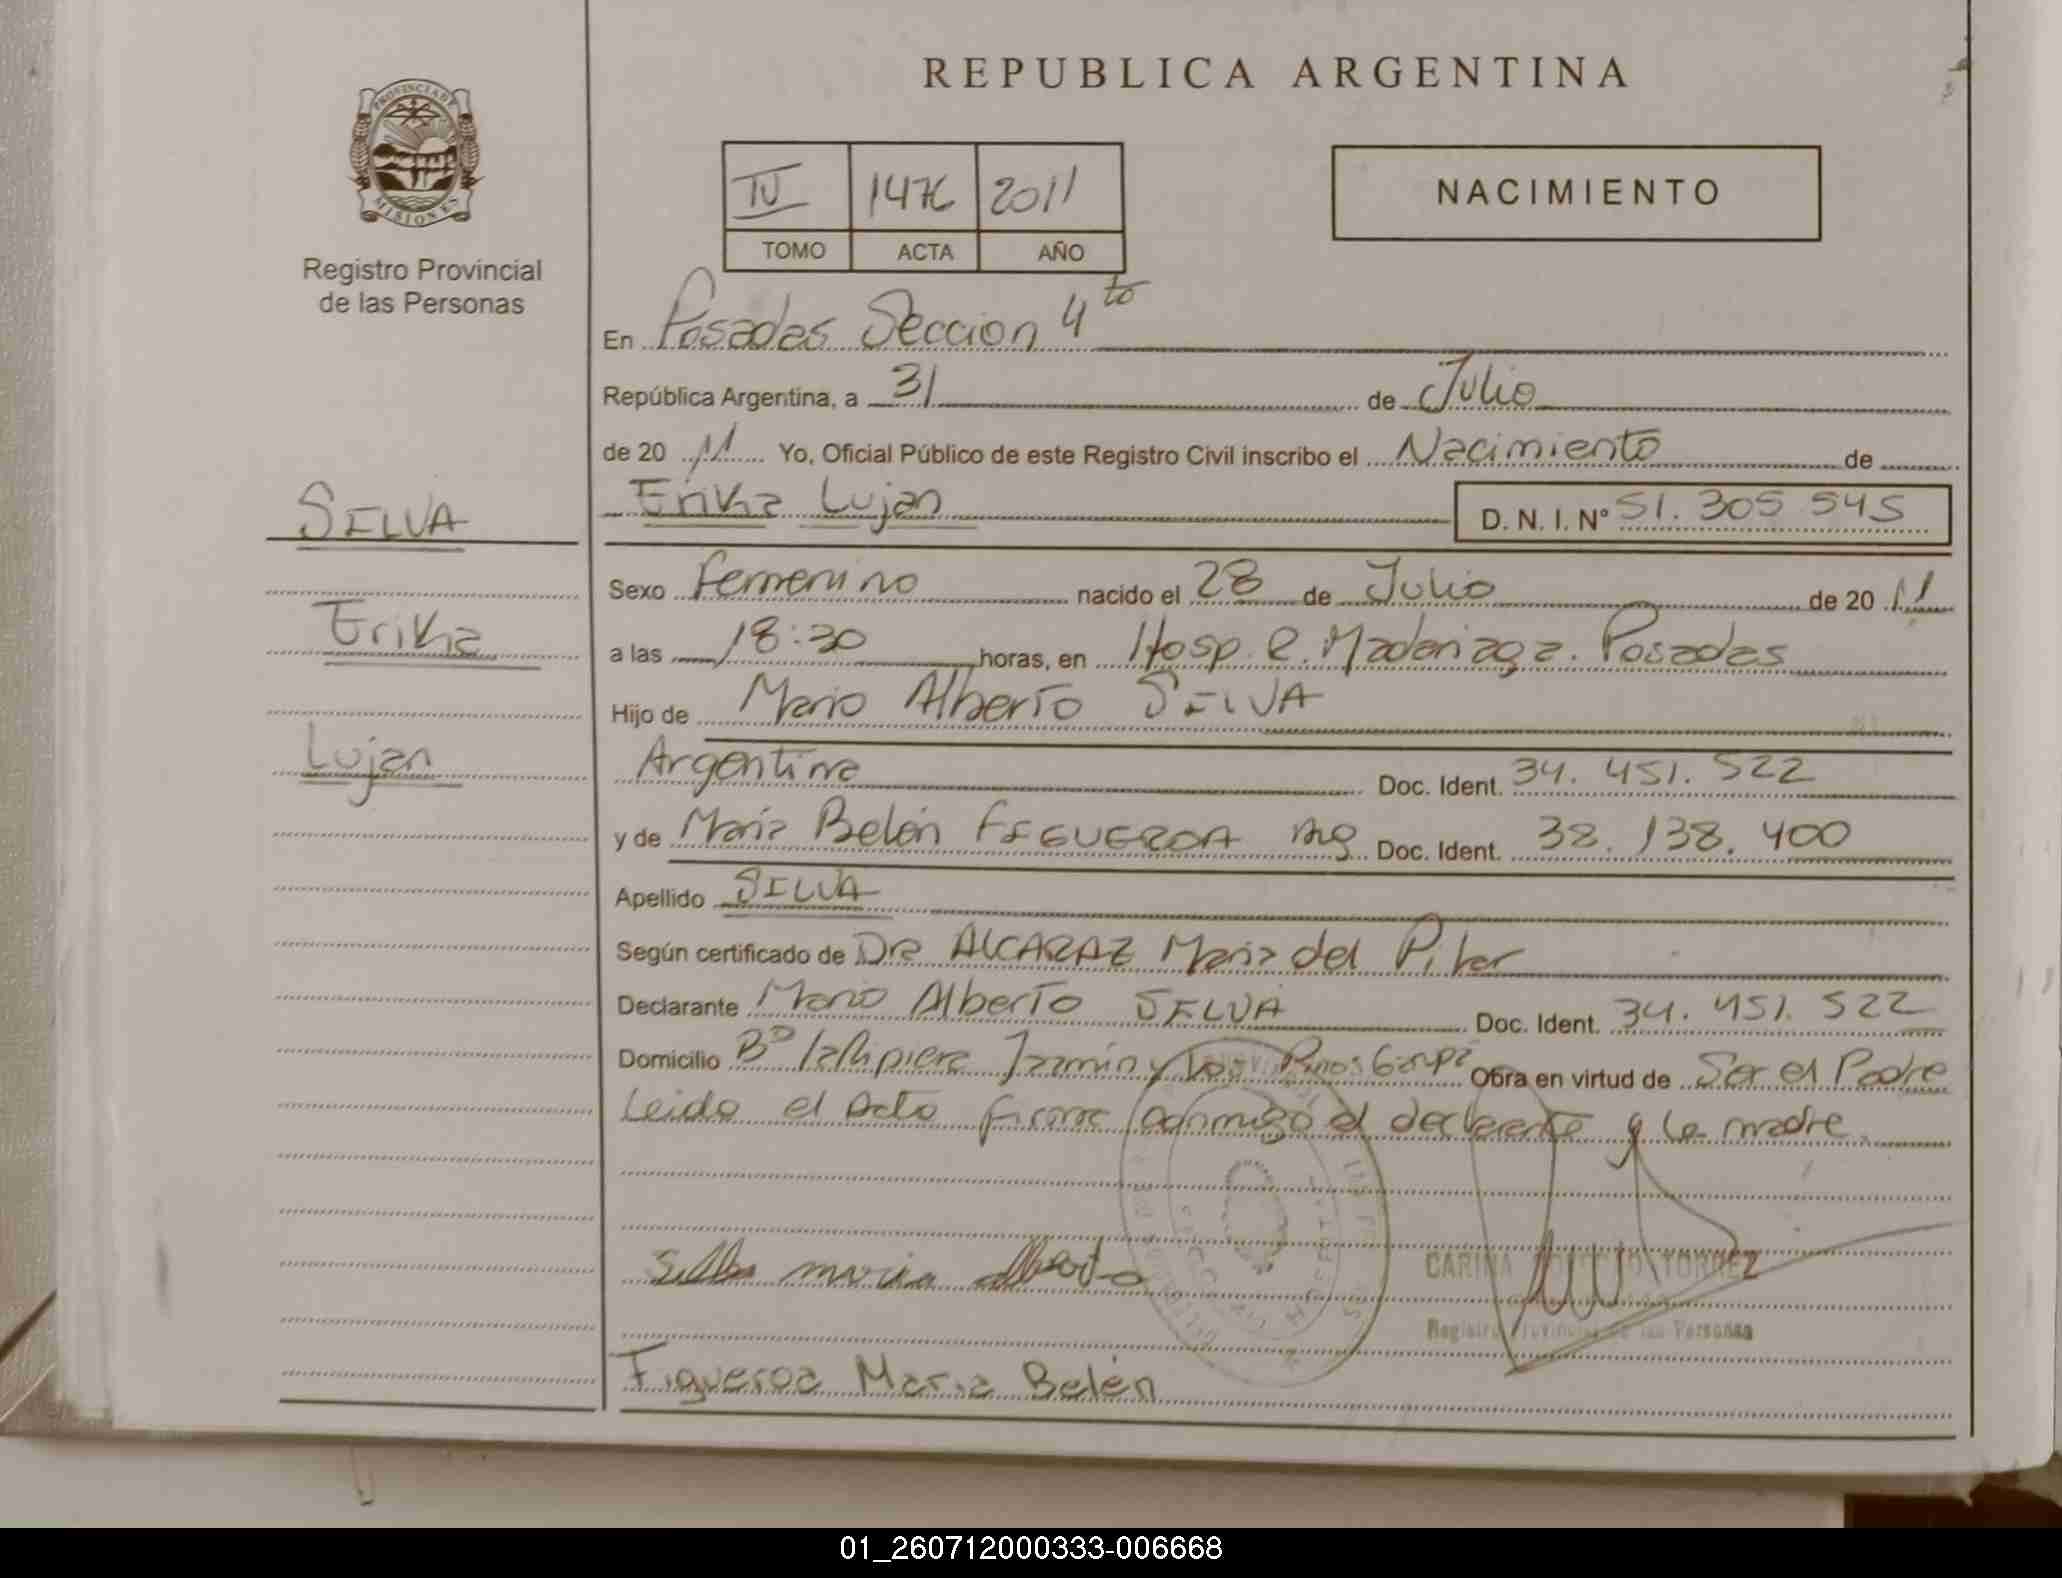 REPUBLICA ARGENTINA
PROVINCIA DE
MISIONES
Registro Provincial
de las Personas
IV 1476 2011
TOMO ACTA AÑO
NACIMIENTO
En Posadas Seccion 4to
República Argentina, a 31 de Julio
de 20 11 Yo, Oficial Público de este Registro Civil inscribo el Nacimiento de
Erika Lujan D. N. I. Nº 51.305 545
SILVA
Erika
Lujan
Sexo Femenino nacido el 28 de Julio de 20 11
a las 18:30 horas, en Hosp. R. Madariaga. Posadas
Hijo de Mario Alberto SILVA
Argentina Doc. Ident. 34.451.522
y de María Belén FIGUEROA Arg Doc. Ident. 38.138.400
Apellido SILVA
Según certificado de Dra ALCARAZ Maria del Pilar
Declarante Mario Alberto SILVA Doc. Ident. 34.451.522
Domicilio Bº Jazmin y Los Pinos Garupa Obra en virtud de Ser el Padre
Leido el acta firma conmigo el declarante y la madre.
Silva mario alberto
CARINA TORREZ
Registro Provincial de las Personas
Figueroa Maria Belén
01_260712000333-006668